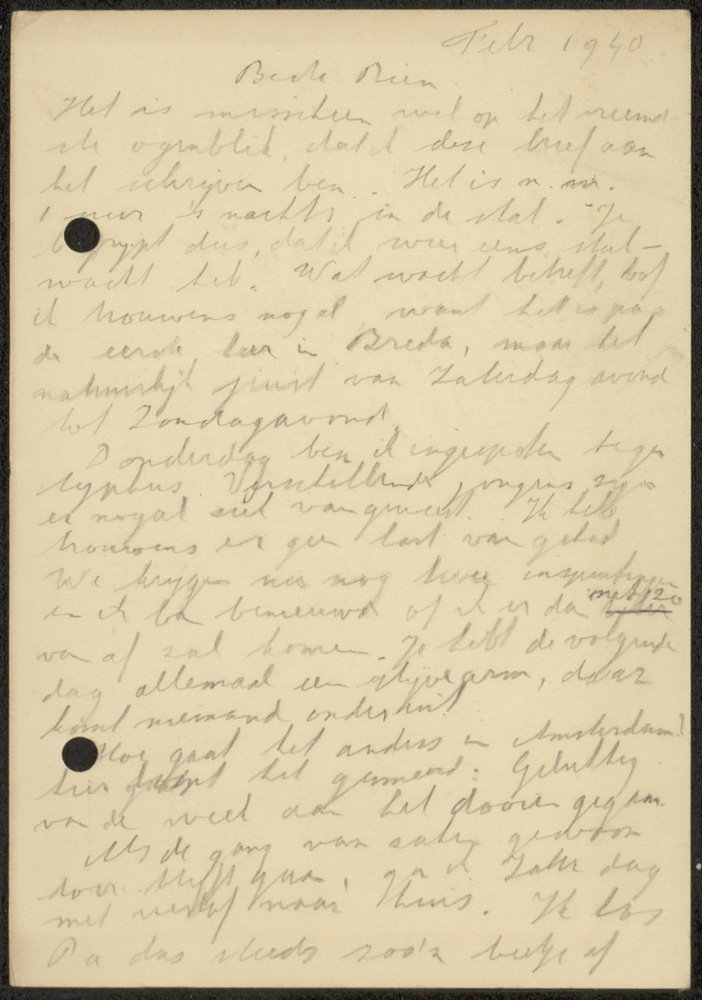 Febr 1940
Beste Rien
Het is misschien wel op het vreemd-
ste ogenblik, dat ik deze brief aan
het schrijven ben. Het is n.m.
1 uur 's nachts in de stal. Je
begrijpt dus, dat ik weer eens stal-
wacht heb. Wat wacht betreft, bof
ik trouwens nogal want het is pas
de eerste keer in Breda, maar het
natuurlijk juist van Zaterdagavond
tot Zondagavond.
Donderdag ben ik ingespoten tegen
typhus. Verschillende jongens zijn
er nogal ziek van geweest. Ik heb
trouwens er geen last van gehad
We krijgen nu nog twee inspuitingen
en ik ben benieuwd of ik er dan met zo
van af zal komen. Je hebt de volgende
dag allemaal een stijve arm, daar
komt niemand onderuit.
Hoe gaat het anders in Amsterdam?
hier het gesmeerd. Gelukkig
van de week aan het dooien gegaan.
Als de gang van zaken gewoon
door blijft gaan, ga ik Zaterdag
met verlof naar huis. Ik los
Pa dus steeds zoo'n beetje af